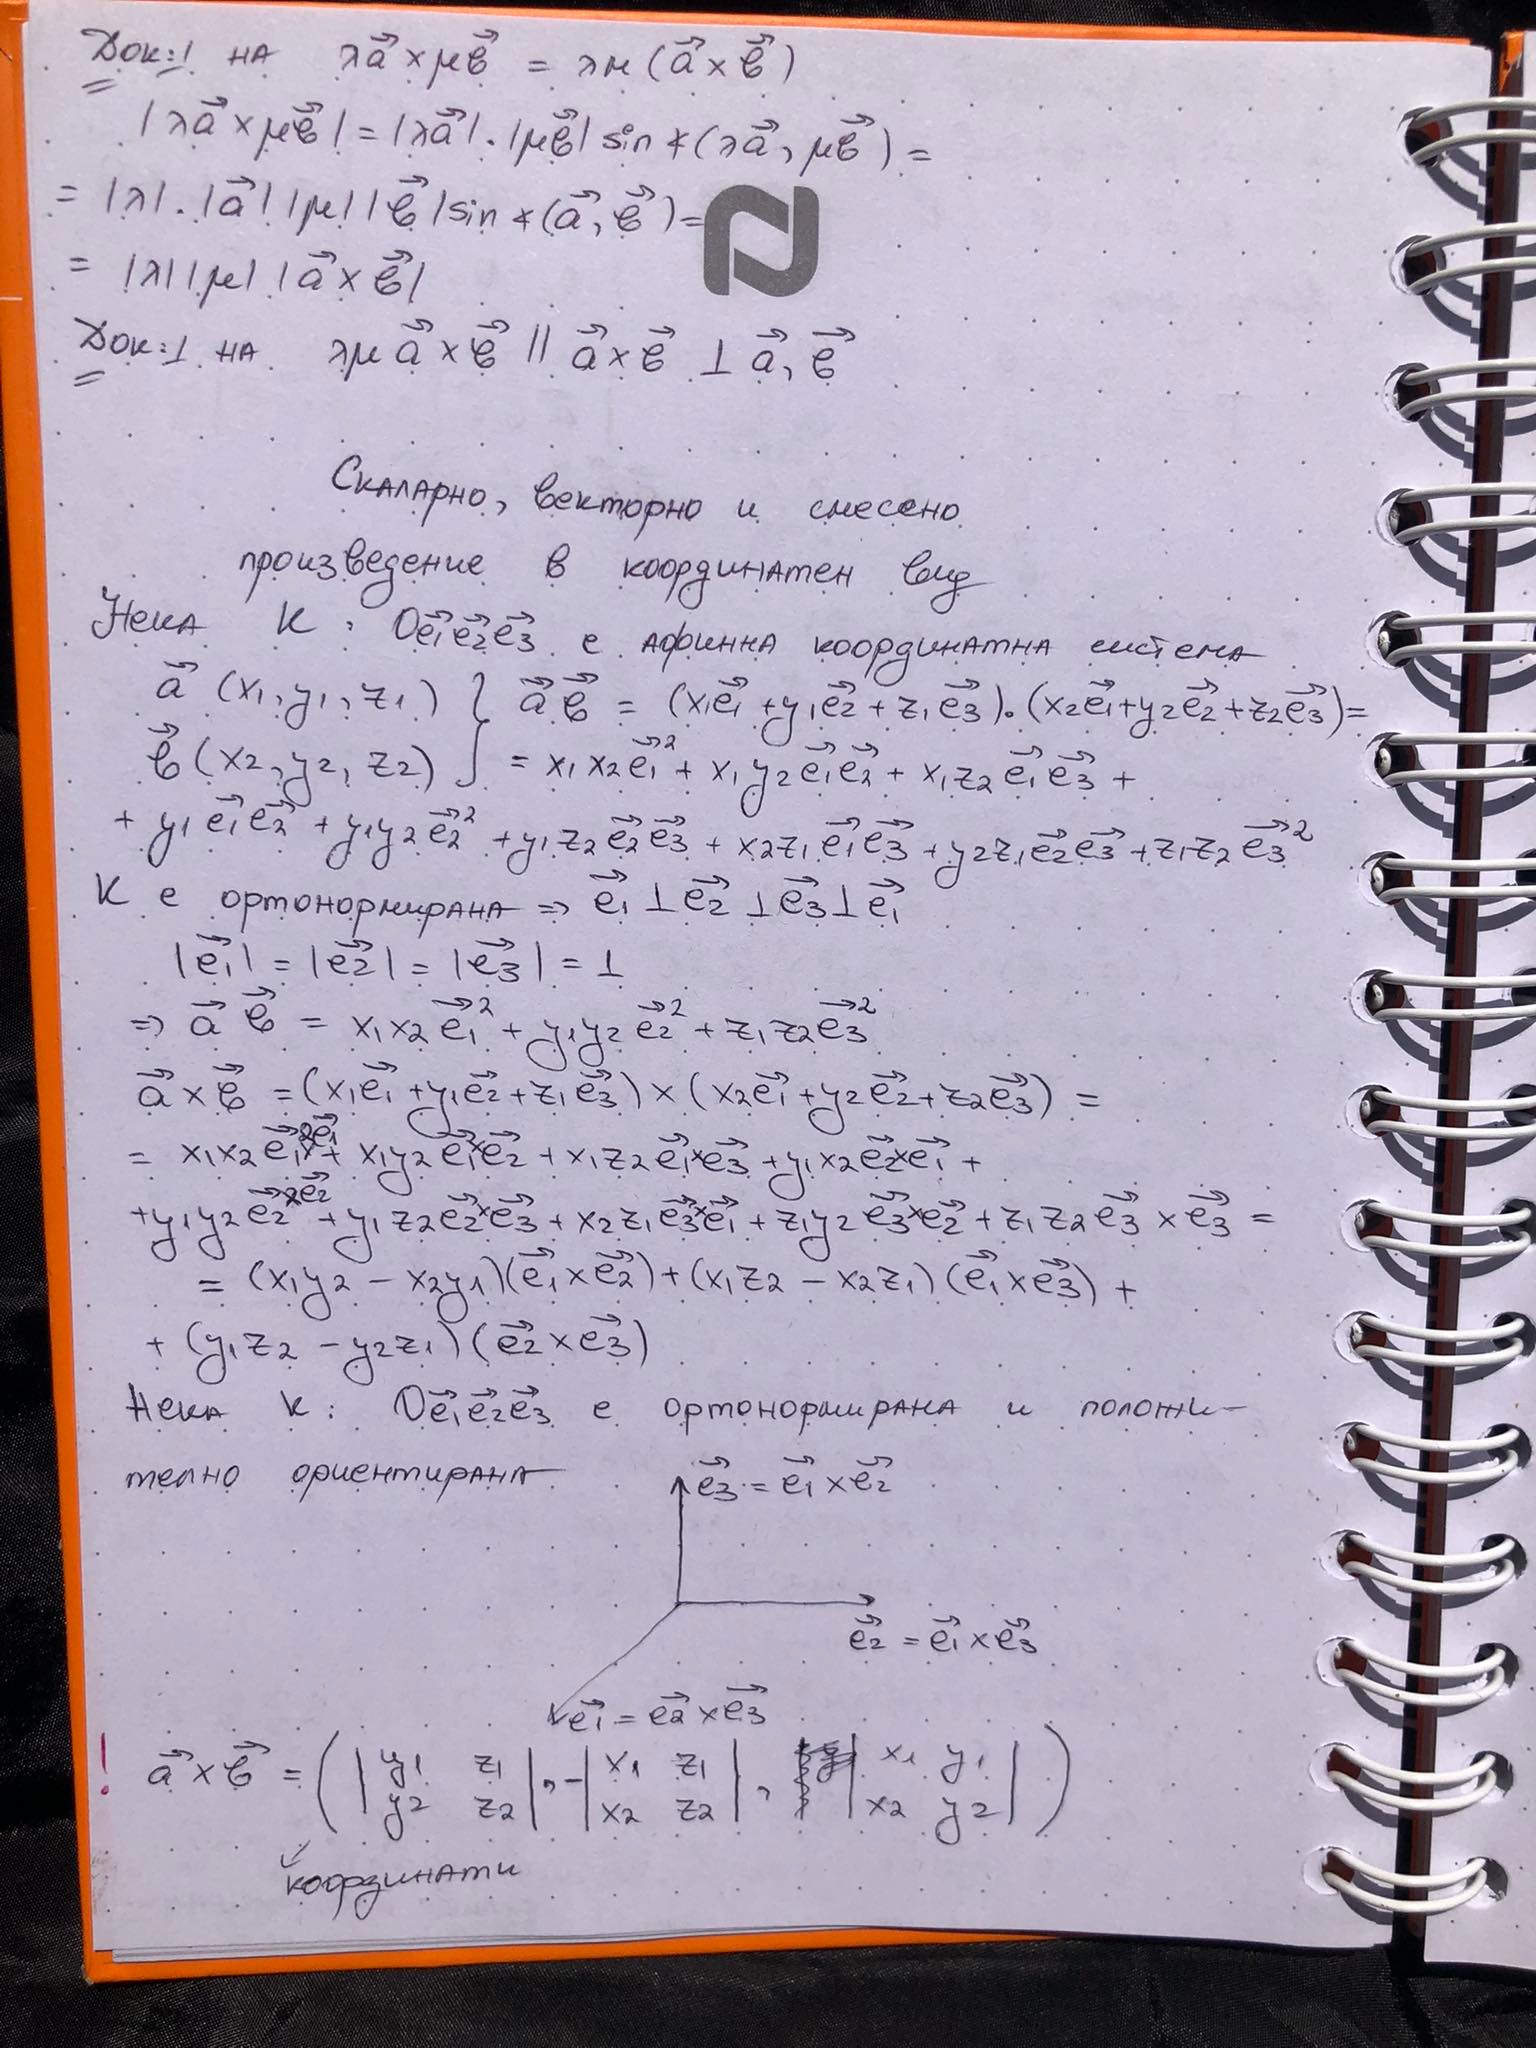 Док:1 на λa⃗ × μb⃗ = λμ(a⃗ × b⃗)
|λa⃗ × μb⃗| = |λa⃗|.|μb⃗| sin∢(λa⃗, μb⃗) =
= |λ|.|a⃗| |μ| |b⃗| sin∢(a⃗, b⃗) =
= |λ| |μ| |a⃗ × b⃗|
Док:1 на λμ a⃗ × b⃗ || a⃗ × b⃗ ⊥ a⃗, b⃗
Скаларно, векторно и смесено
произведение в координатен вид
Нека K: Oe⃗₁e⃗₂e⃗₃ е афинна координатна система
a⃗ (x₁, y₁, z₁) } a⃗ b⃗ = (x₁e⃗₁ + y₁e⃗₂ + z₁e⃗₃).(x₂e⃗₁ + y₂e⃗₂ + z₂e⃗₃) =
b⃗ (x₂, y₂, z₂) } = x₁x₂e⃗₁² + x₁y₂e⃗₁e⃗₂ + x₁z₂e⃗₁e⃗₃ +
+ y₁e⃗₁e⃗₂ + y₁y₂e⃗₂² + y₁z₂e⃗₂e⃗₃ + x₂z₁e⃗₁e⃗₃ + y₂z₁e⃗₂e⃗₃ + z₁z₂e⃗₃²
K е ортонормирана => e⃗₁ ⊥ e⃗₂ ⊥ e⃗₃ ⊥ e⃗₁
|e⃗₁| = |e⃗₂| = |e⃗₃| = 1
=> a⃗ b⃗ = x₁x₂e⃗₁² + y₁y₂e⃗₂² + z₁z₂e⃗₃²
a⃗ × b⃗ = (x₁e⃗₁ + y₁e⃗₂ + z₁e⃗₃) × (x₂e⃗₁ + y₂e⃗₂ + z₂e⃗₃) =
= x₁x₂e⃗₁×e⃗₁ + x₁y₂e⃗₁×e⃗₂ + x₁z₂e⃗₁×e⃗₃ + y₁x₂e⃗₂×e⃗₁ +
+ y₁y₂e⃗₂×e⃗₂ + y₁z₂e⃗₂×e⃗₃ + x₂z₁e⃗₃×e⃗₁ + z₁y₂e⃗₃×e⃗₂ + z₁z₂e⃗₃ × e⃗₃ =
= (x₁y₂ - x₂y₁)(e⃗₁ × e⃗₂) + (x₁z₂ - x₂z₁)(e⃗₁ × e⃗₃) +
+ (y₁z₂ - y₂z₁)(e⃗₂ × e⃗₃)
Нека K: Oe⃗₁e⃗₂e⃗₃ е ортонормирана и положи-
телно ориентирана
e⃗₃ = e⃗₁ × e⃗₂
e⃗₂ = e⃗₁ × e⃗₃
e⃗₁ = e⃗₂ × e⃗₃
! a⃗ × b⃗ = ( | y₁ z₁ | , - | x₁ z₁ | , | x₁ y₁ | )
| y₂ z₂ | | x₂ z₂ | | x₂ y₂ |
координати